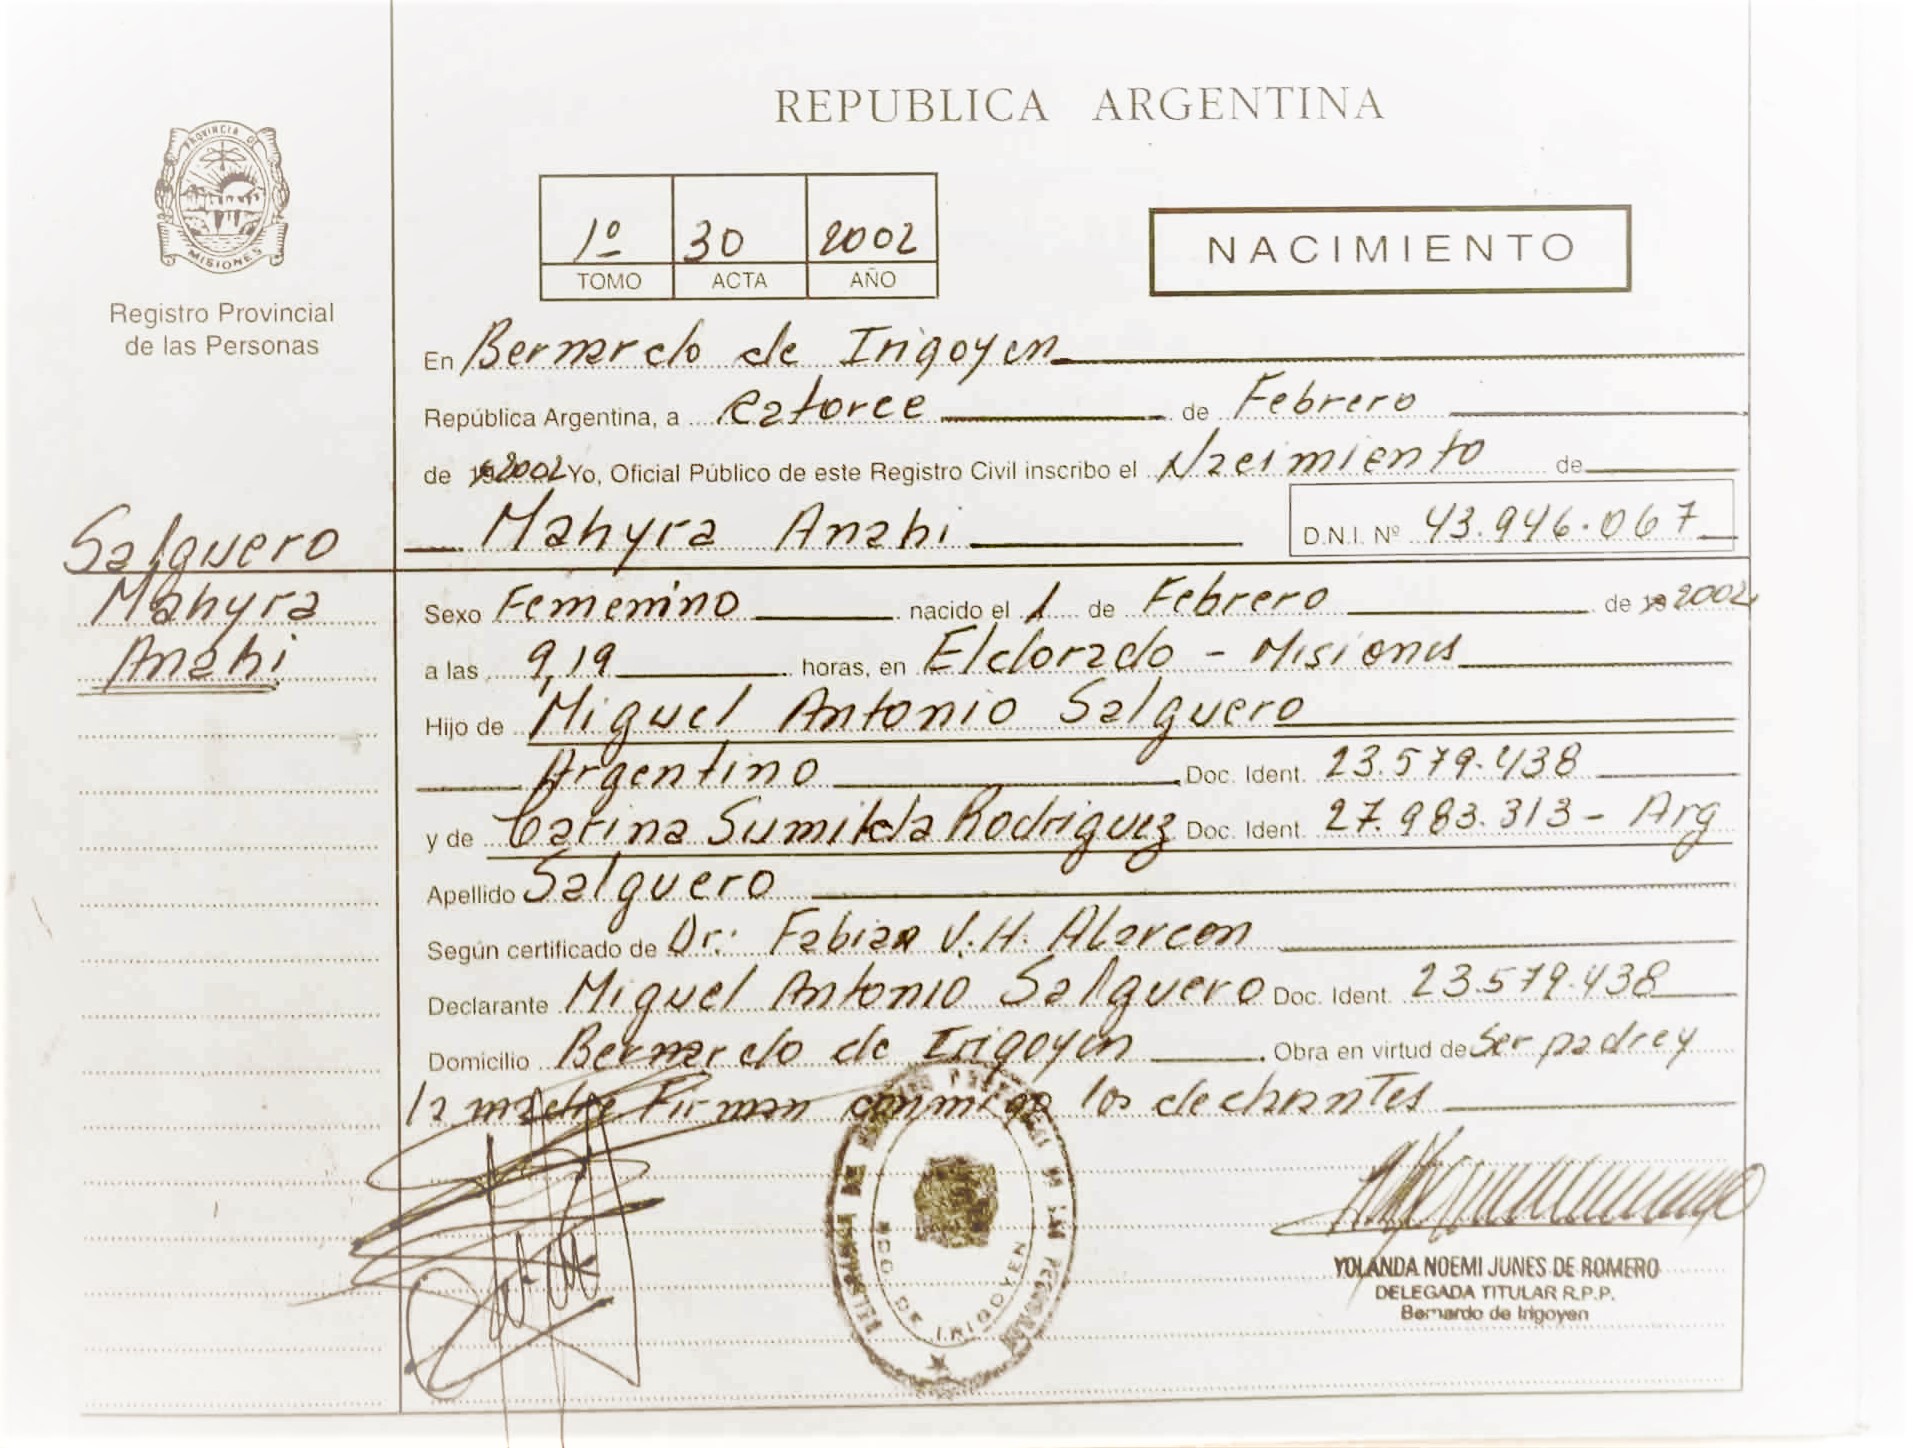 REPUBLICA ARGENTINA
PROVINCIA DE
MISIONES
Registro Provincial
de las Personas
1º 30 2002
TOMO ACTA AÑO
NACIMIENTO
En Bernardo de Irigoyen
República Argentina, a catorce de Febrero
de 2002 Yo, Oficial Público de este Registro Civil inscribo el Nacimiento de
Mahyra Anahi D.N.I. Nº 43.946.067
Salguero
Mahyra
Anahi
Sexo Femenino nacido el 1 de Febrero de 2002
a las 9,19 horas, en Eldorado - Misiones
Hijo de Miguel Antonio Salguero
Argentino Doc. Ident. 23.579.438
y de Carina Sumilda Rodriguez Doc. Ident. 27.983.313 - Arg
Apellido Salguero
Según certificado de Dr: Fabian V.H. Alarcon
Declarante Miguel Antonio Salguero Doc. Ident. 23.579.438
Domicilio Bernardo de Irigoyen Obra en virtud de Ser padre y
la madre Firman conmigo los
BDO. DE IRIGOYEN
YOLANDA NOEMI JUNES DE ROMERO
DELEGADA TITULAR R.P.P.
Bernardo de Irigoyen